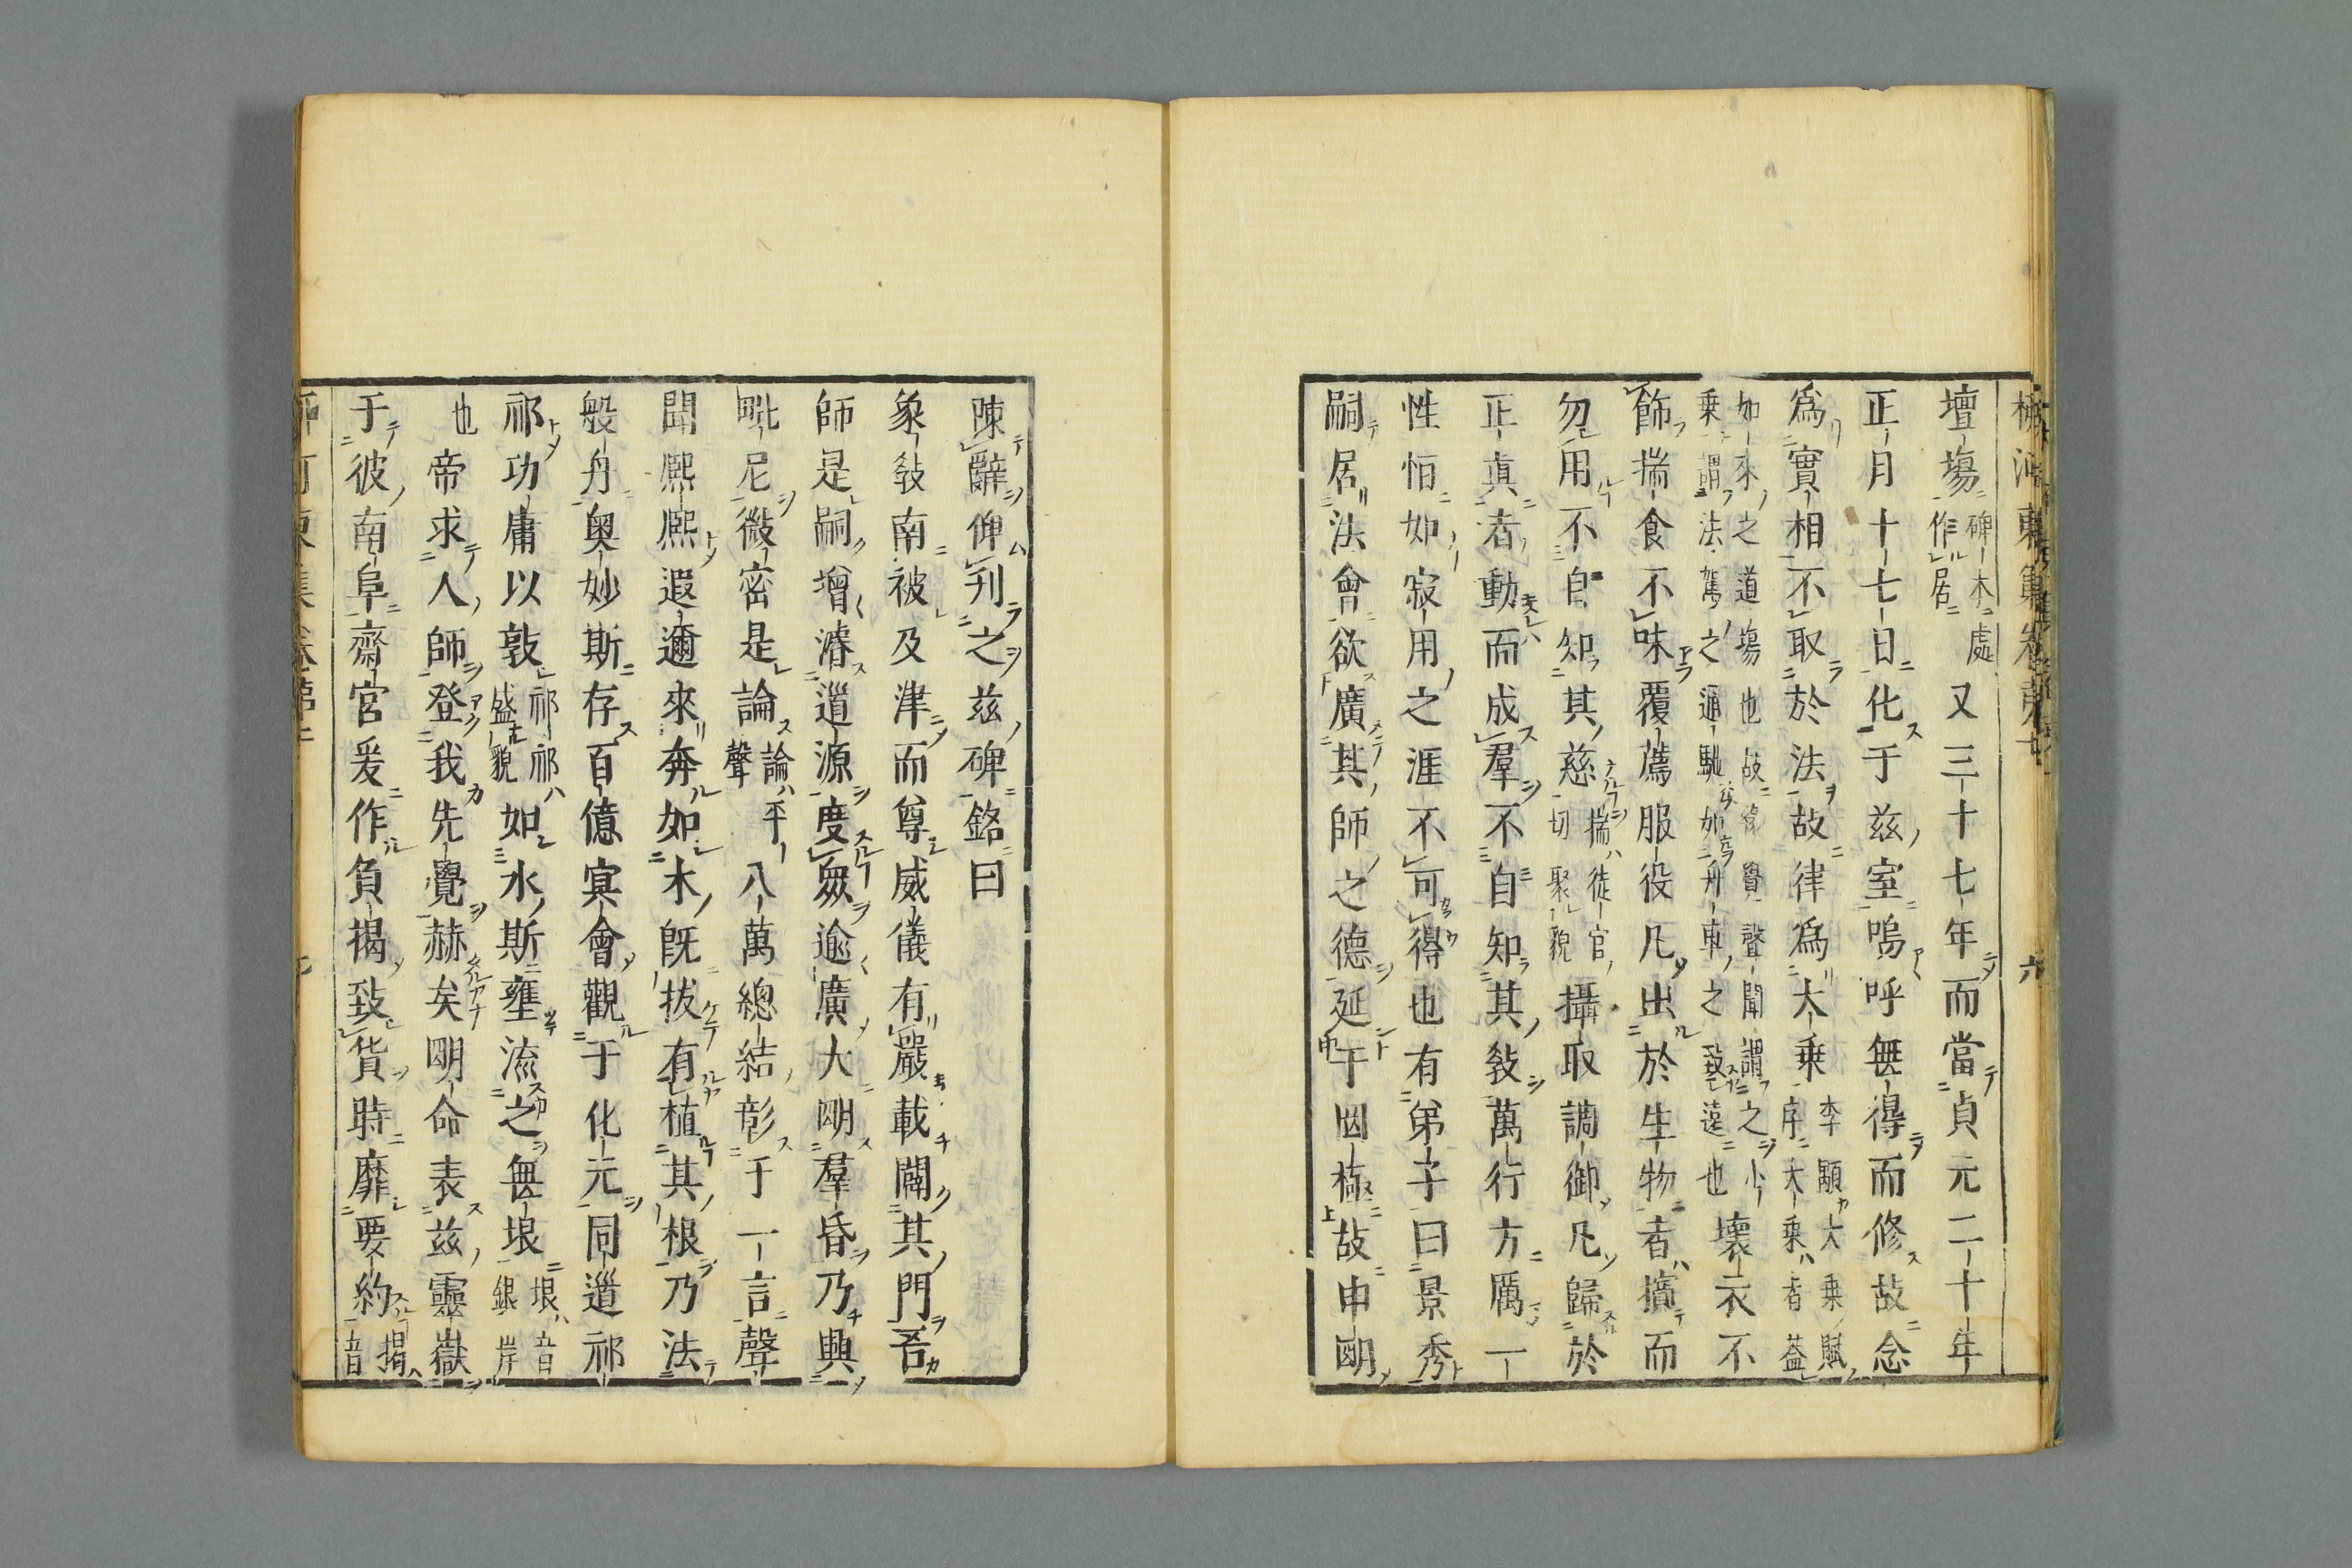 壇場碑本處作居又三十七年而當貞元二十年
正月十七日化于茲室嗚呼無得而修故念
爲實相不取於法故律爲大乗李顒大乗賦序大乗者葢
如來之道場也故緣覺聲聞謂之小乗謂法駕之通馳如舟車之致遠也壞衣不
飾揣食不味覆薦服役凡出於生物者擯而
勿用不自知其慈揣徒官切聚貌攝取調御凡歸於
正真者動而成羣不自知其敎萬行方厲一
性恒如寂用之涯不可得也有弟子曰景秀
嗣居法會欲廣其師之德延于罔極故申明
陳辭俾刋之茲碑銘曰
象敎南被及津而尊威儀有嚴載闢其門吾
師是嗣增濬道源度衆逾廣大明羣昏乃興
毗尼微密是論論平聲八萬總結彰于一言聲
聞熙熙遐邇來奔如木旣拔有植其根乃法
般舟奥妙斯存百億冥會觀于化元同道祁
祁功庸以敦祁祁盛貌如水斯壅流之無垠垠音銀岸
也帝求人師登我先覺赫矣明命表茲靈嶽
于彼南阜齋宮爰作負揭致貨時靡要約揭音